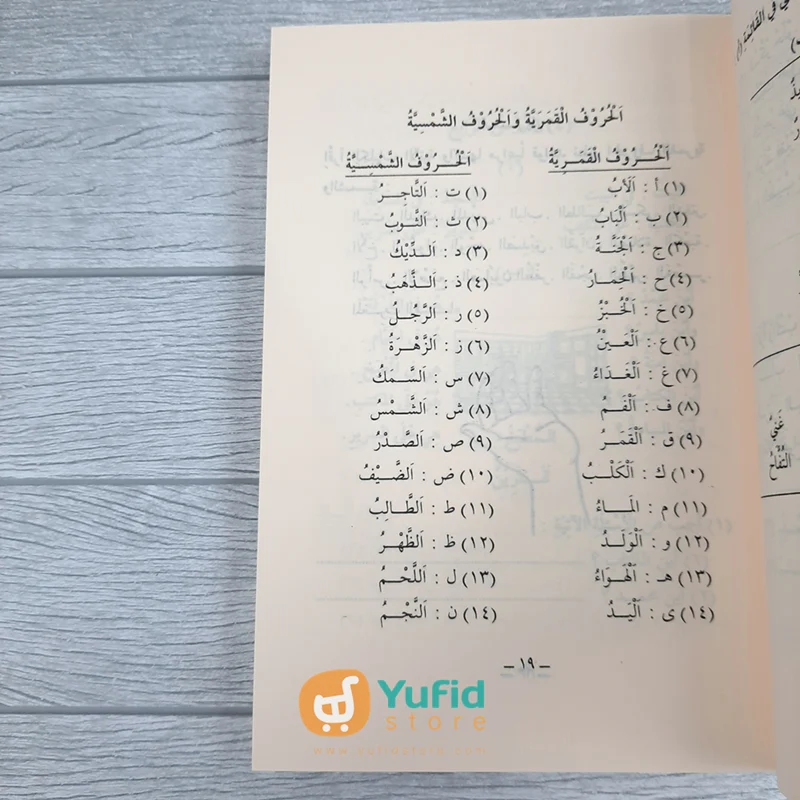 اَلْحُرُوْفُ الْقَمَرِيَّةُ وَاَلْحُرُوْفُ الشَّمْسِيَّةُ
اَلْحُـرُوْفُ الْقَمَـرِيَّةُ
(١) أ : اَلأَبُ
(٢) ب : اَلْبَابُ
(٣) ج : اَلْجَنَّةُ
(٤) ح : اَلْحِمَـارُ
(٥) خ : اَلْخُبْزُ
(٦) ع : اَلْعَـيْنُ
(٧) غ : اَلْغَدَاءُ
(٨) ف : اَلْفَـمُ
(٩) ق : اَلْقَمَـرُ
(١٠) ك : اَلْكَلْـبُ
(١١) م : اَلْمَـاءُ
(١٢) و : اَلْوَلَـدُ
(١٣) هـ : اَلْهَوَاءُ
(١٤) ى : اَلْيَـدُ
اَلْحُـرُوْفُ الشَّمْسِـيَّةُ
(١) ت : اَلتَّاجِـرُ
(٢) ث : اَلثَّوبُ
(٣) د : اَلـدِّيْكُ
(٤) ذ : اَلـذَّهَبُ
(٥) ر : اَلرَّجُـلُ
(٦) ز : اَلزَّهْـرَةُ
(٧) س : اَلسَّـمَكُ
(٨) ش : اَلشَّـمْسُ
(٩) ص : اَلصَّـدْرُ
(١٠) ض : اَلضَّـيْفُ
(١١) ط : اَلطَّـالِبُ
(١٢) ظ : اَلظَّهْـرُ
(١٣) ل : اَللَّحْـمُ
(١٤) ن : اَلنَّجْـمُ
– ١٩ –
غَنِيٌّ
التُّفَّاحُ
Yufid
store
www.yufidstore.com